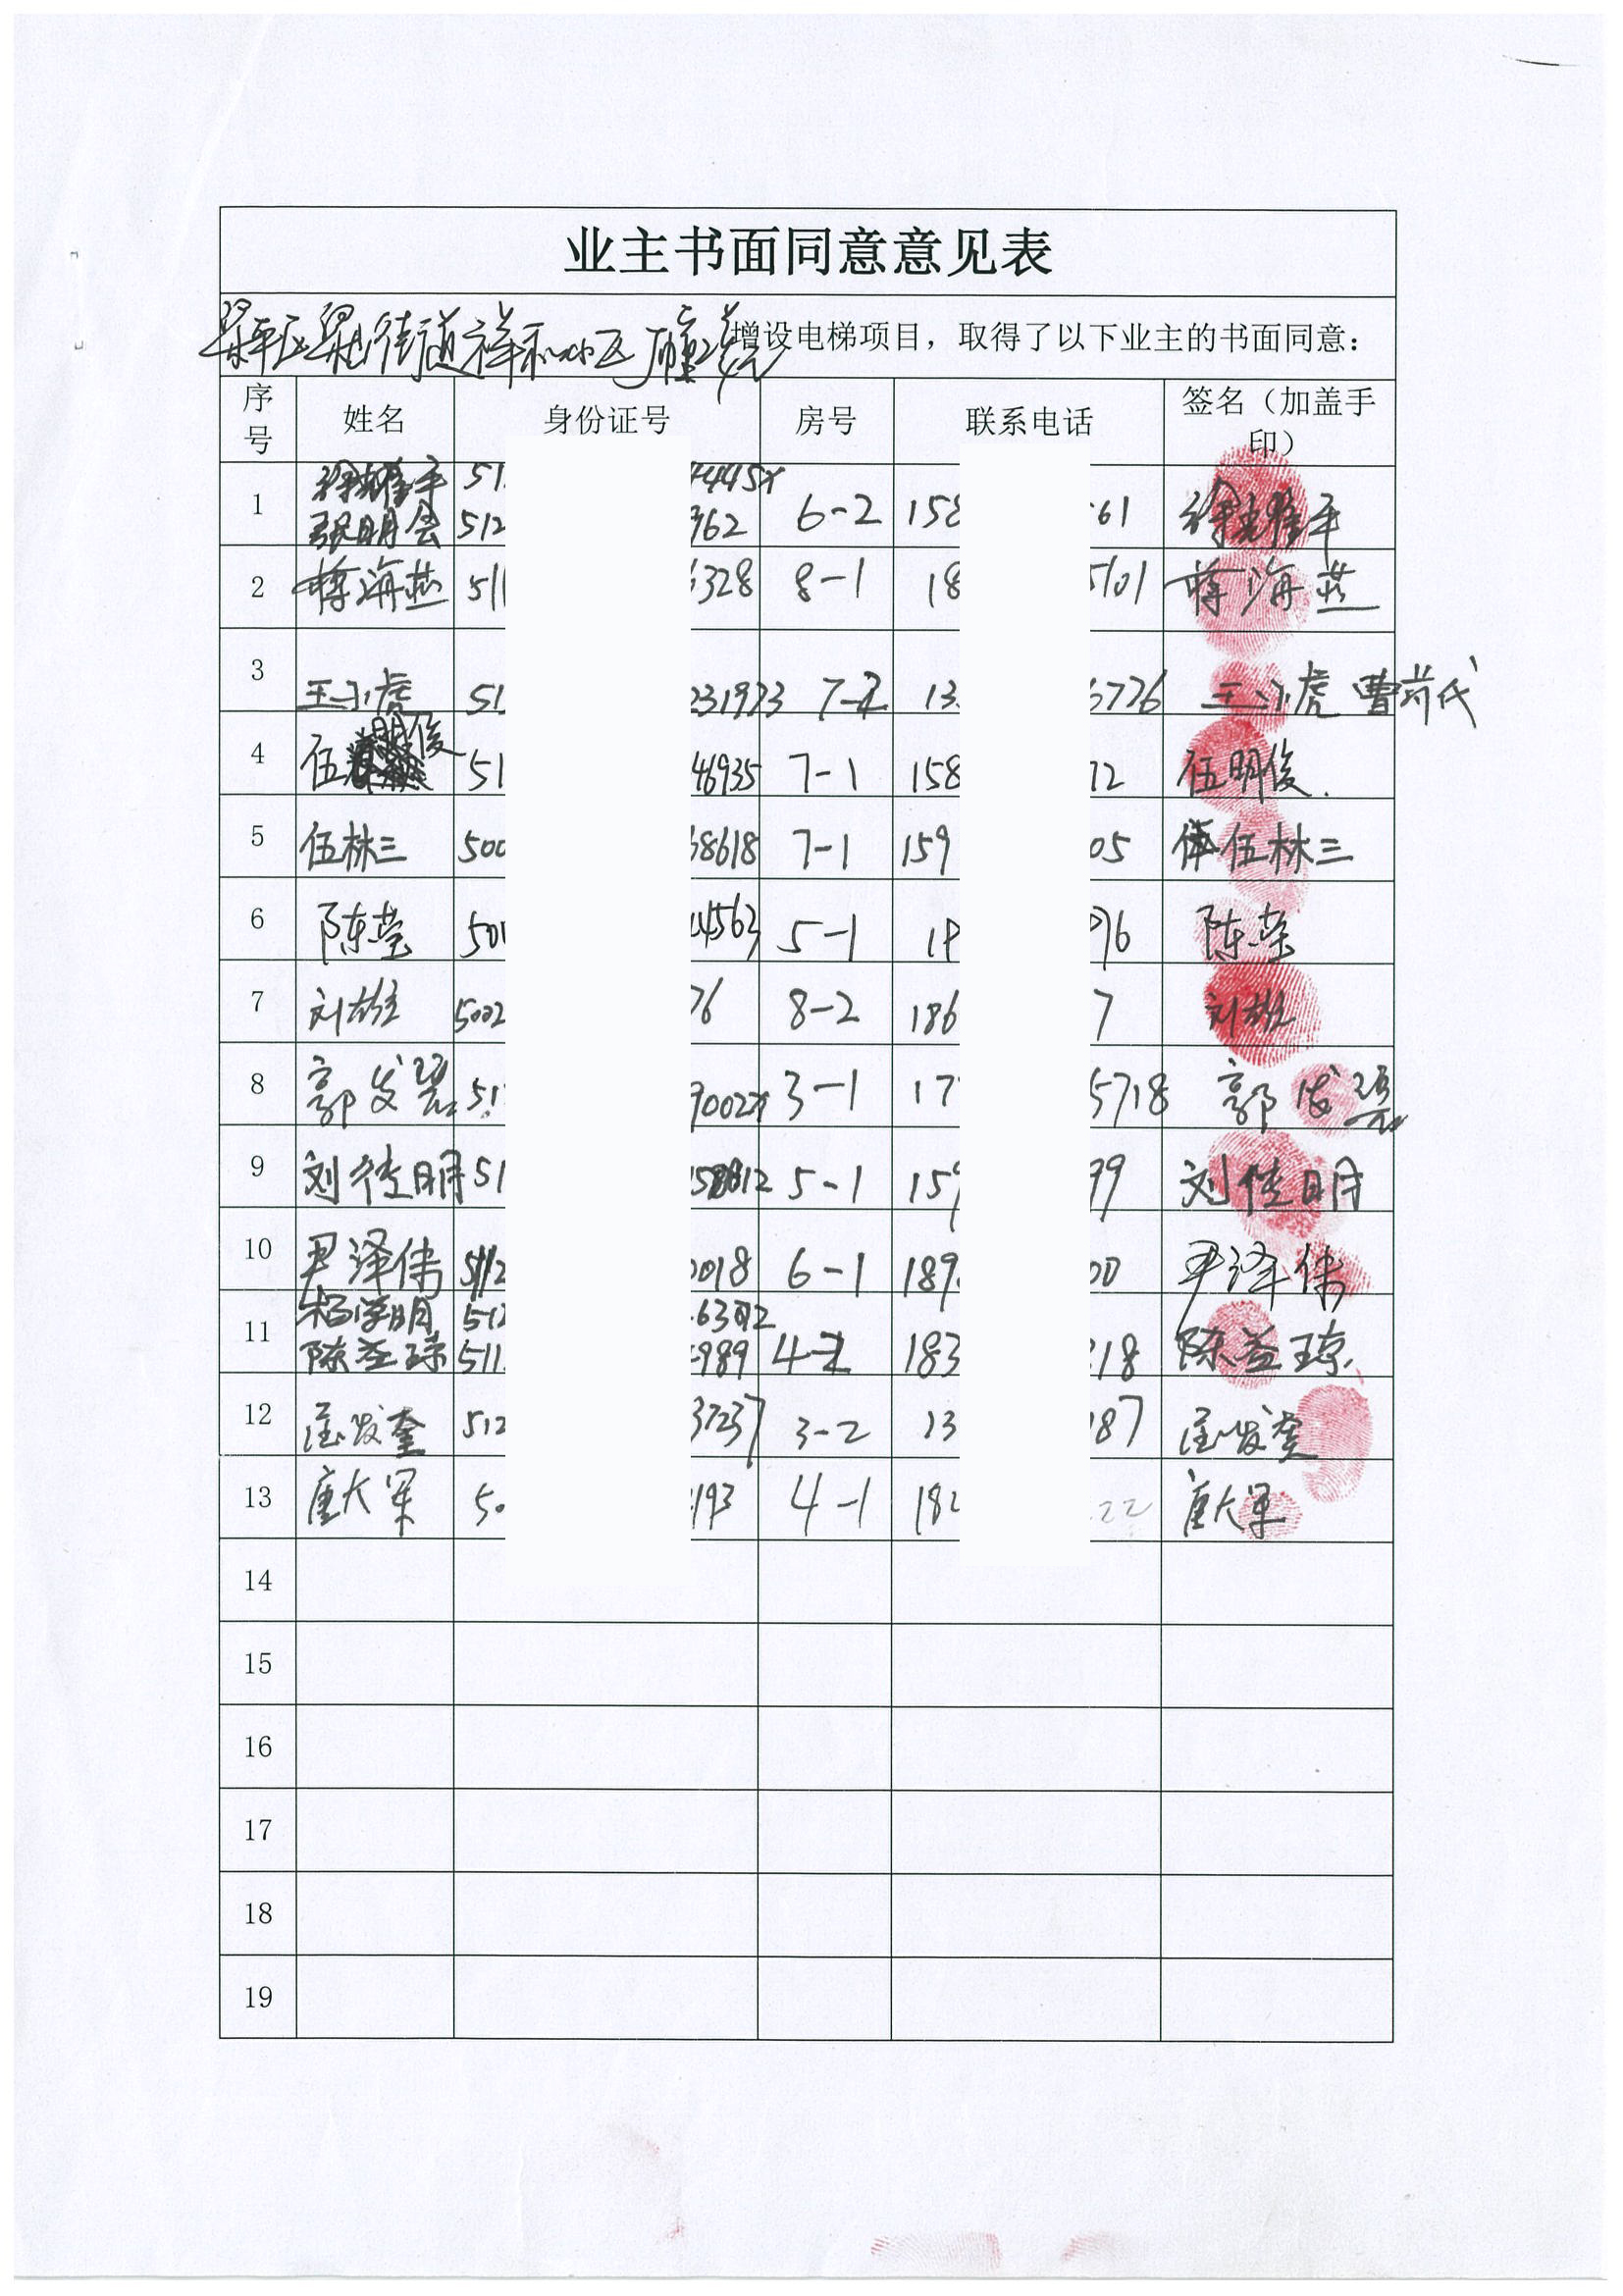 业主书面同意意见表
梁平区梁山街道祥和小区 幢2单元增设电梯项目，取得了以下业主的书面同意：
序号 姓名 身份证号 房号 联系电话 签名（加盖手印）
1 徐耀平 51 4445X 6-2 158 61 徐耀平
张明会 512 962
2 蒋海燕 511 328 8-1 18 5101 蒋海燕
3 王小虎 51 231973 7-2 13 6726 王小虎 曹 代
4 伍明俊 51 46935 7-1 158 72 伍明俊
5 伍林三 500 38618 7-1 159 05 伍林三
6 陈莹 500 4563 5-1 18 96 陈莹
7 刘雄 5002 76 8-2 186 7 刘雄
8 郭发碧 51 9002X 3-1 17 5718 郭发碧
9 刘佳明 51 12 5-1 159 99 刘佳明
10 尹泽伟 5112 0018 6-1 189 00 尹泽伟
11 杨学明 512 6372
陈益琼 511 989 4-2 183 218 陈益琼
12 发奎 512 37237 3-2 13 187 发奎
13 唐大军 50 193 4-1 182 22 唐大军
14
15
16
17
18
19